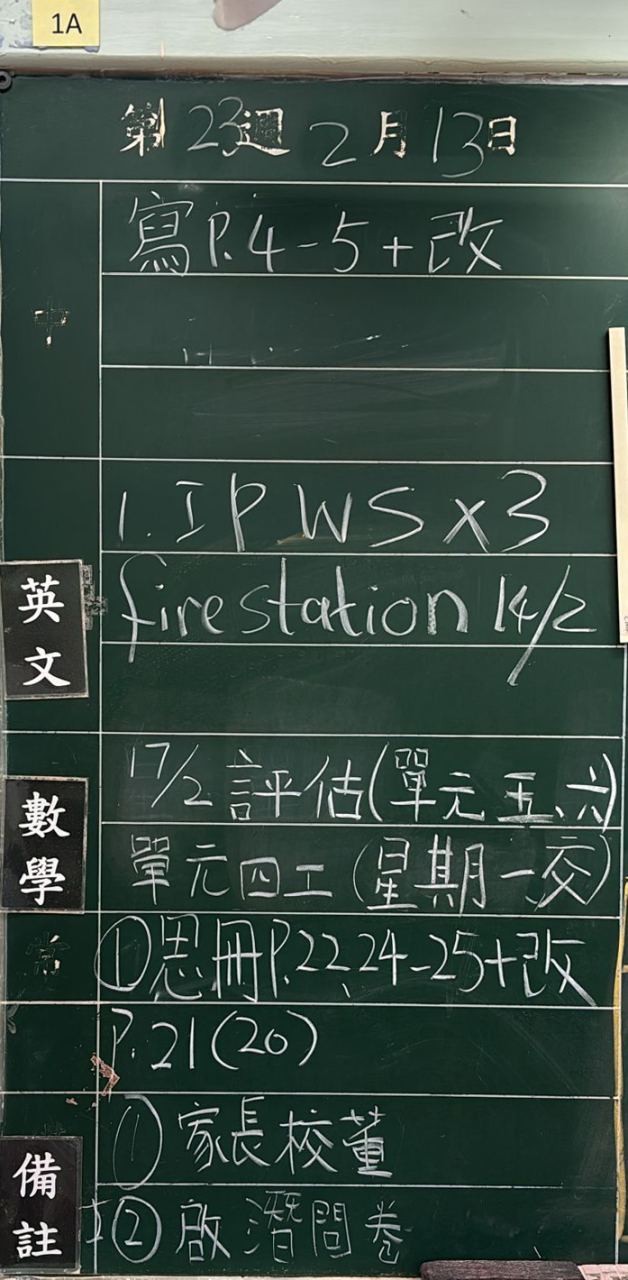 1A
第23週 2月13日
中
寫P.4-5+改
英文
1. IP WS x3
fire station 14/2
數學
17/2 評估(單元五、六)
單元四工(星期一交)
常
①思冊P.22、24-25+改
P.21(20)
備註
①家長校董
②啟潛問卷